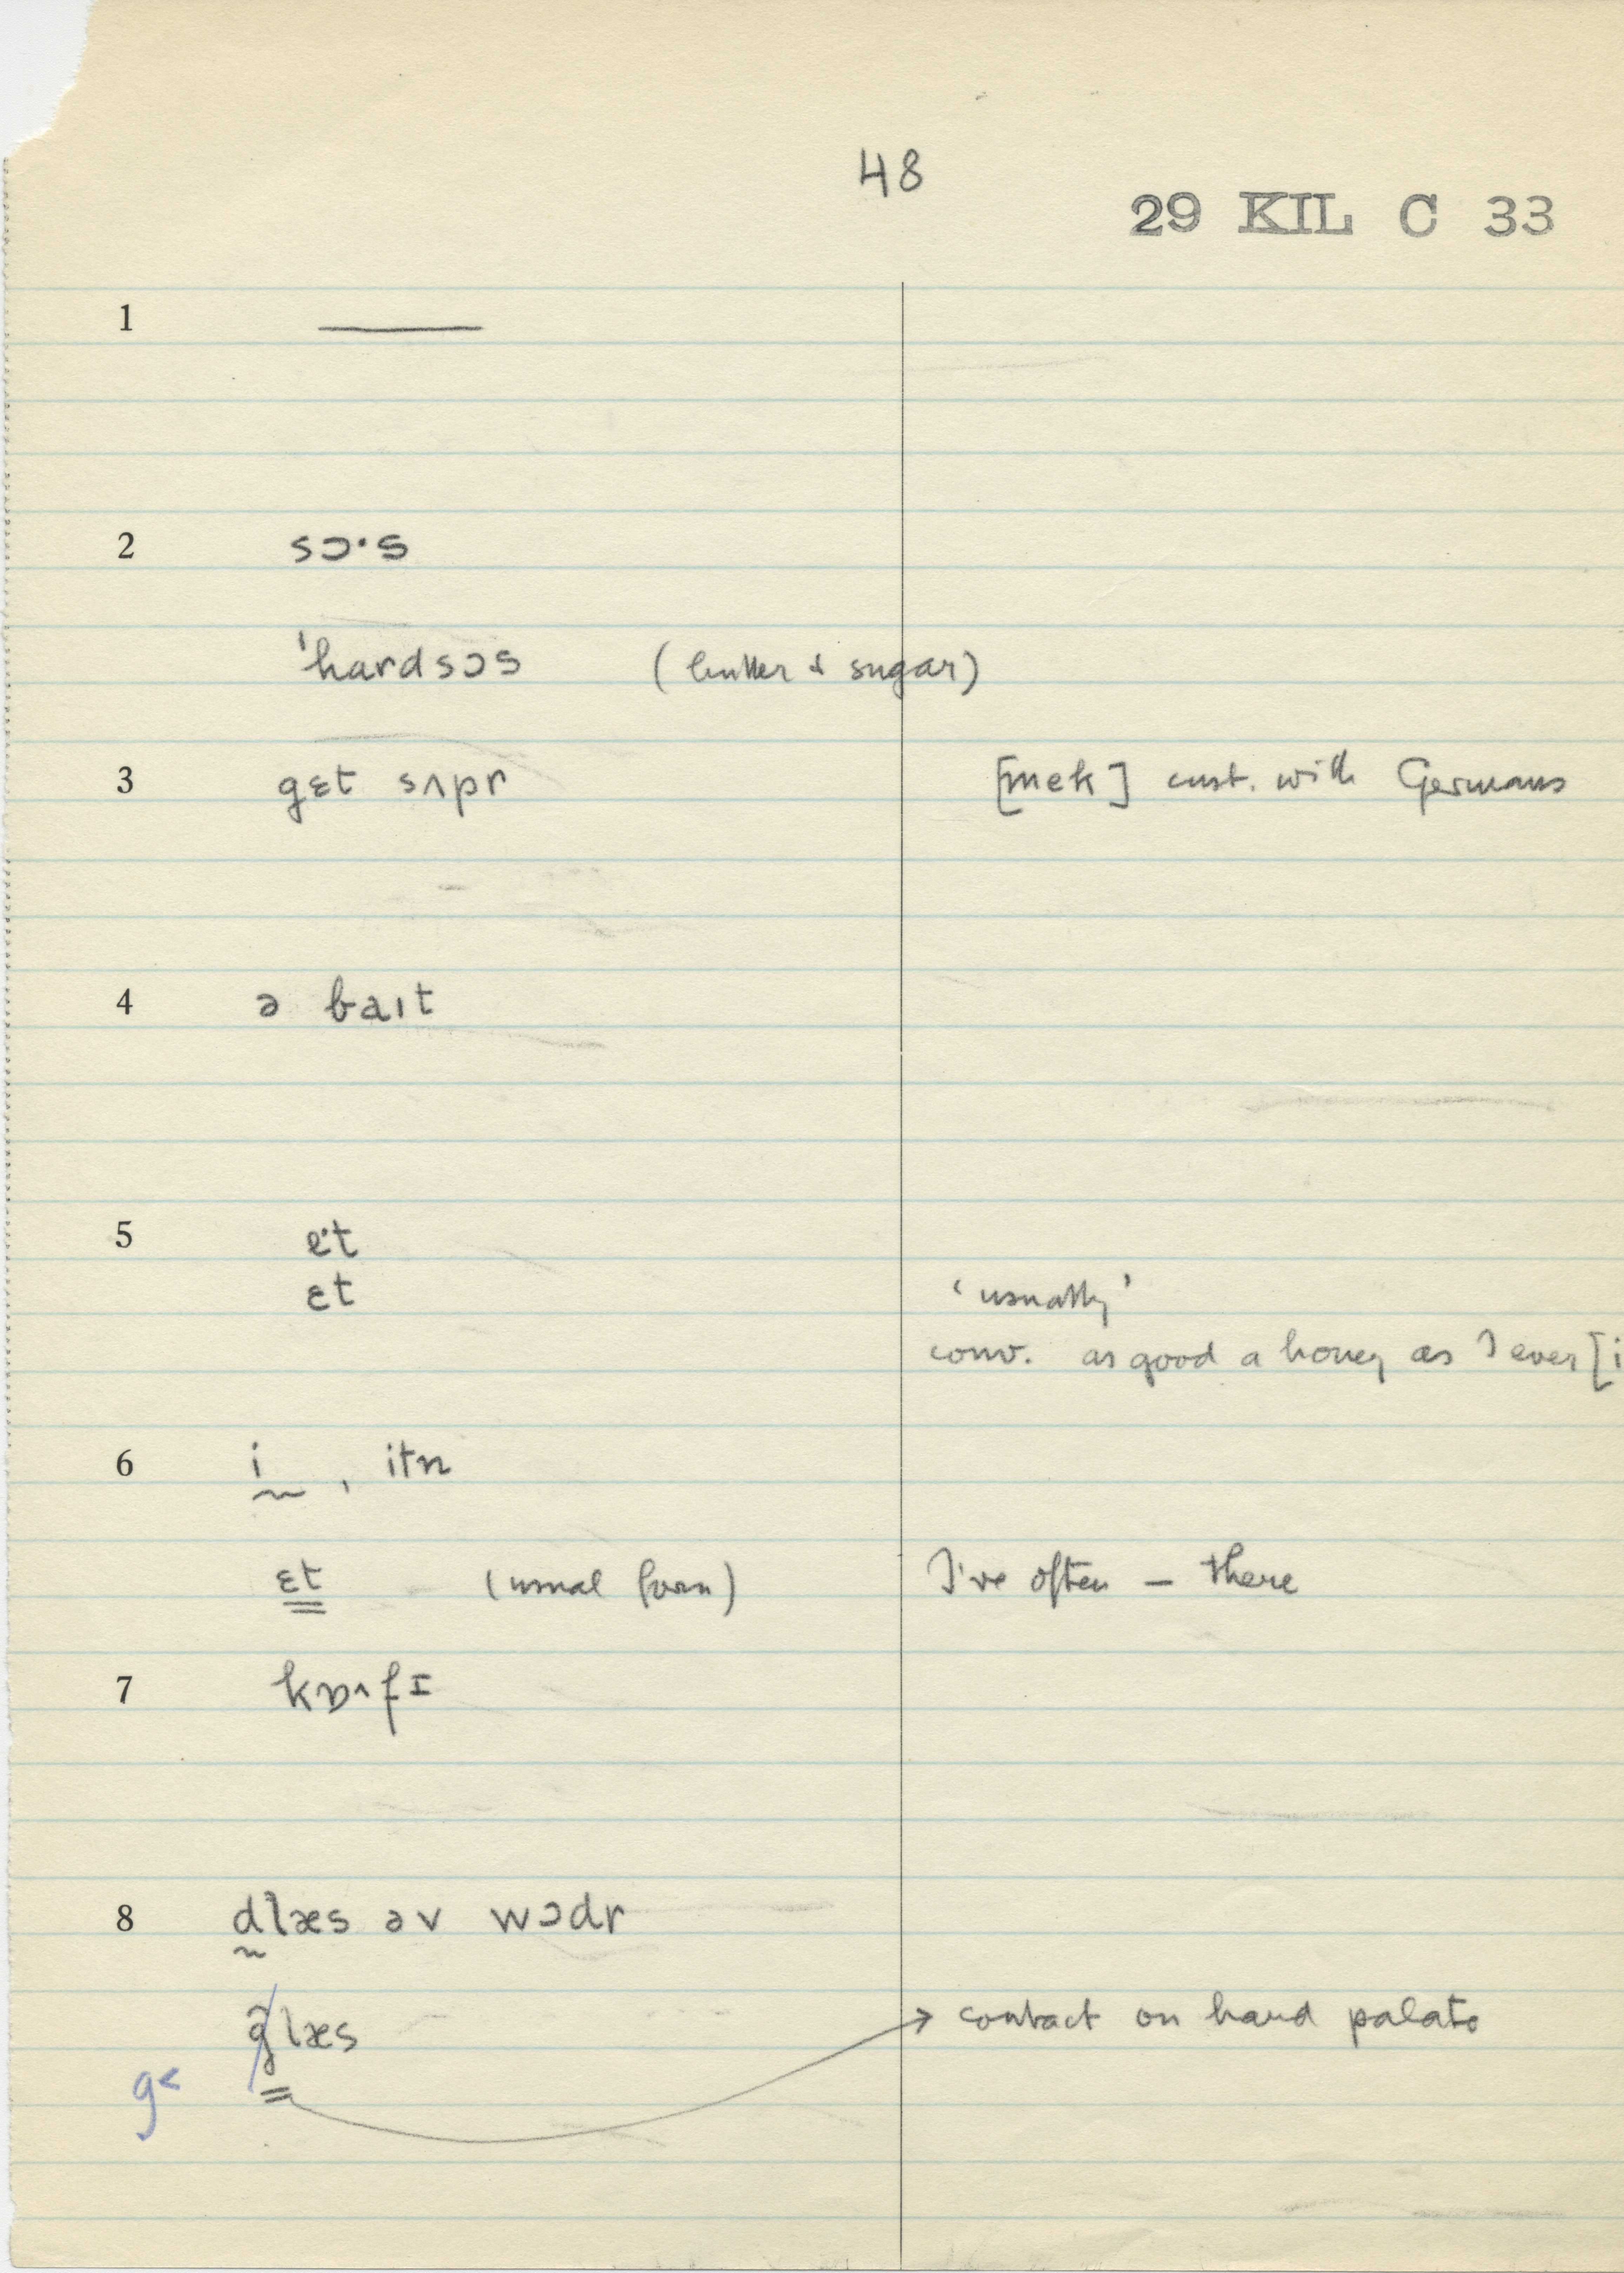 48
29 KIL C 33
1 ———
2 sɔ·s
ˈhardsɔs (butter & sugar)
3 gɛt sʌpr [mek] cust. with Germans
4 ə baɪt
5 e·t
ɛt 'usually'
conv. as good a honey as I ever [i
6 ḭ , itn
ɛt (usual form) I've often — there
7 kɒ^fɪ
8 d̰læs əv wɔdr
glæs → contact on hard palate
g<